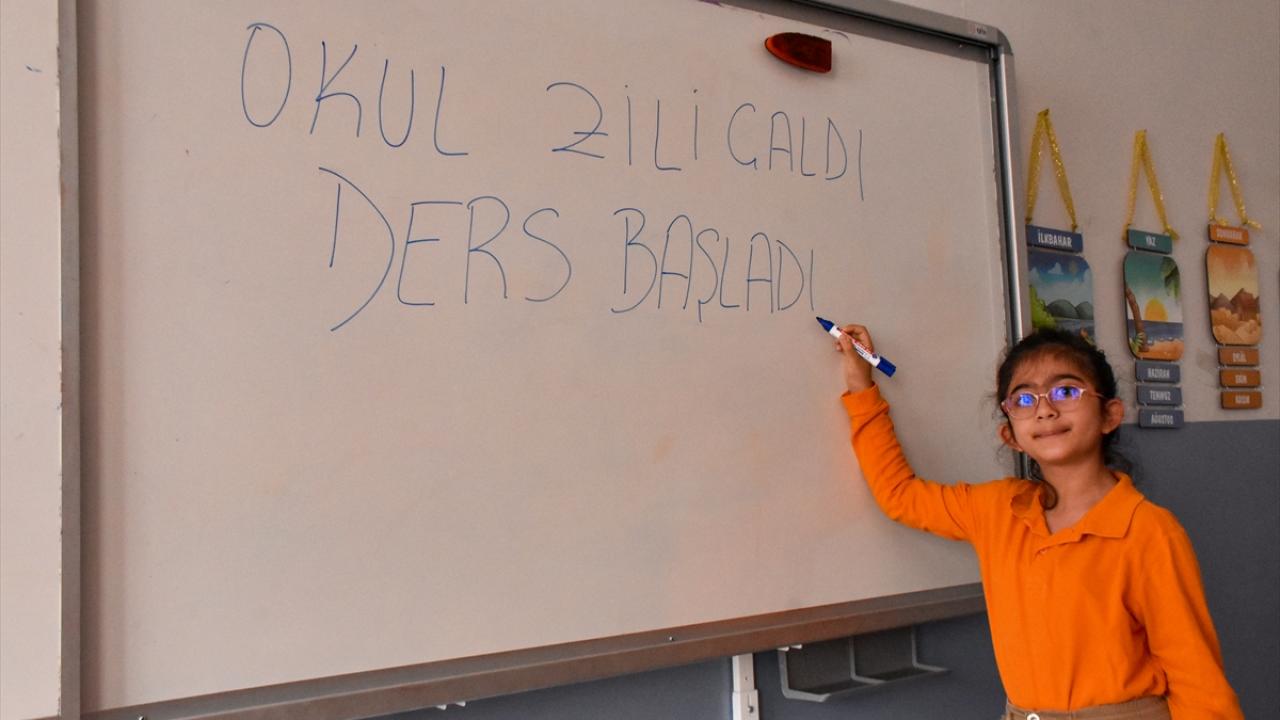 OKUL ZİLİ ÇALDI
DERS BAŞLADI
İLKBAHAR
YAZ
HAZİRAN
TEMMUZ
AĞUSTOS
SONBAHAR
EYLÜL
EKİM
KASIM